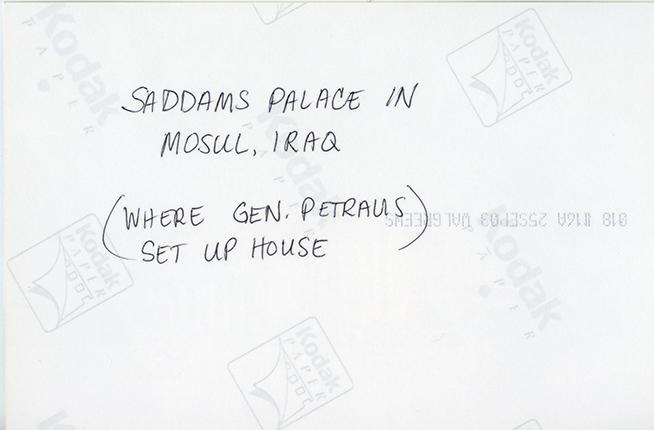 SADDAMS PALACE IN
MOSUL, IRAQ
(WHERE GEN. PETRAUS
SET UP HOUSE)
018 #16A 25SEP03 WALGREENS
Kodak
PAPER
Kodak
PAPER
DOC
Kodak
PAPER
Kodak
PAPER
DOC
Kodak
PAPER
Kodak
PAPER
DOC